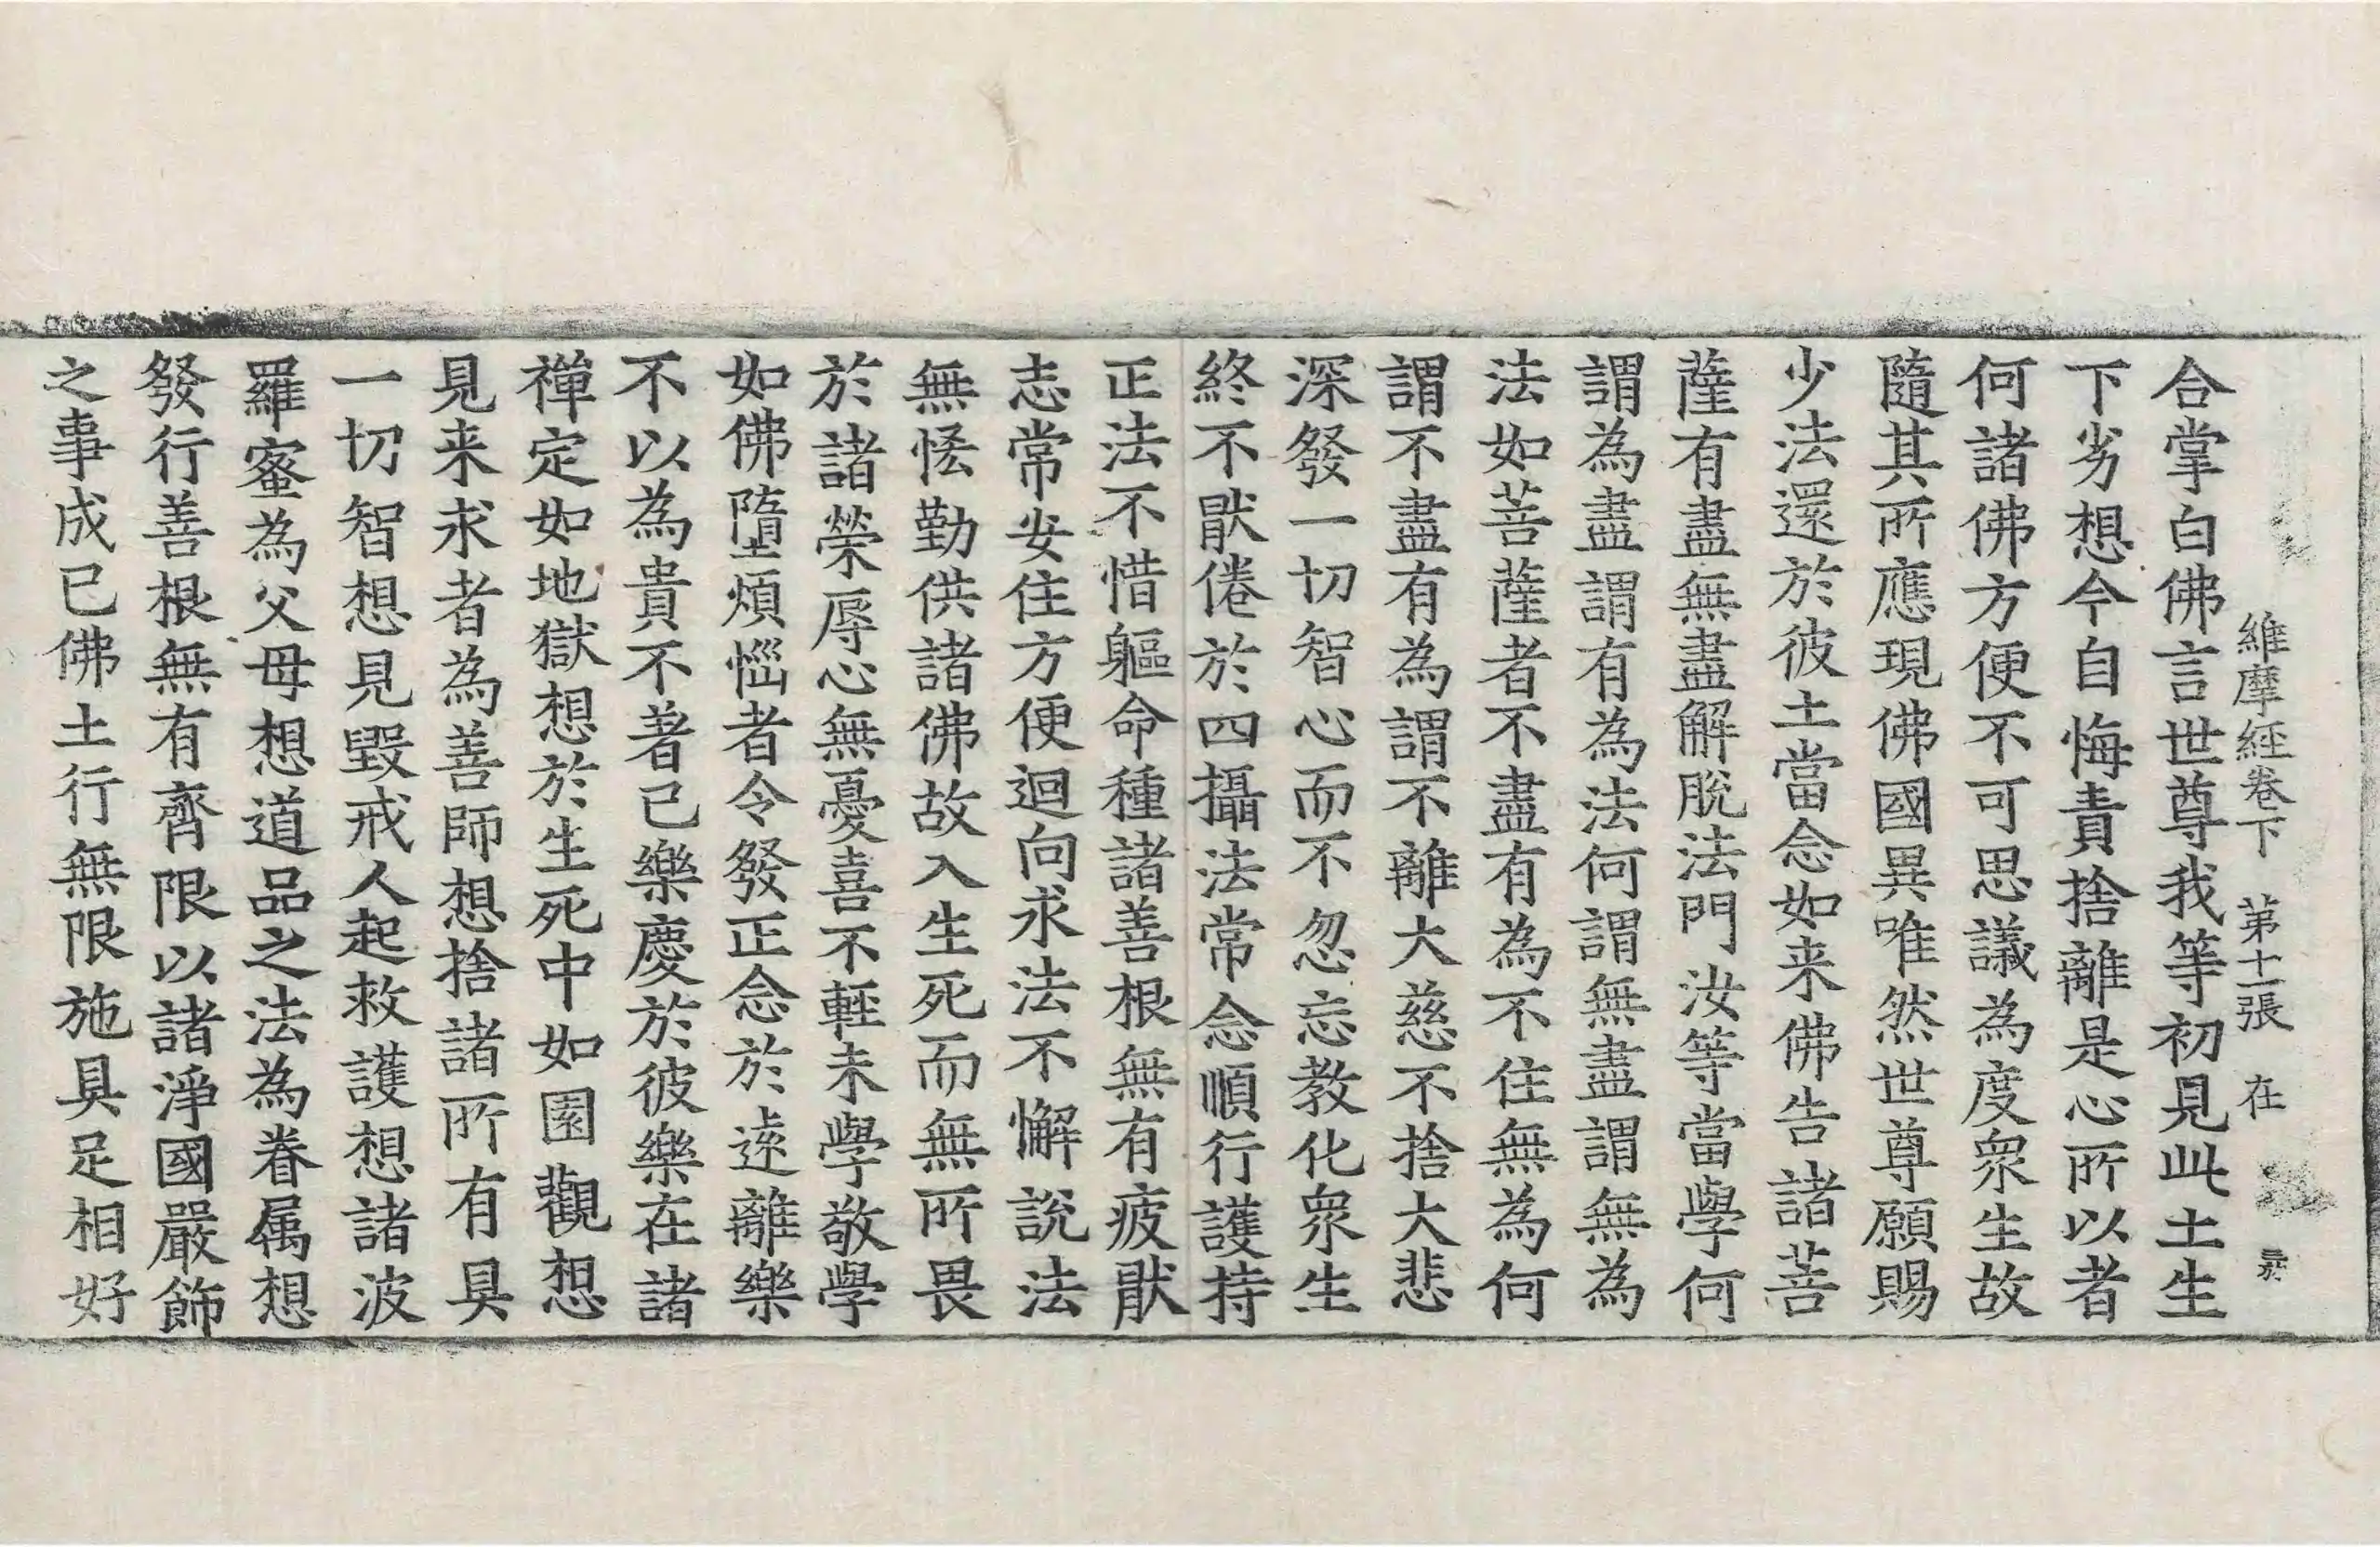 維摩經卷下 第十一張 在
合掌白佛言世尊我等初見此土生
下劣想今自悔責捨離是心所以者
何諸佛方便不可思議為度眾生故
隨其所應現佛國異唯然世尊願賜
少法還於彼土當念如来佛告諸菩
薩有盡無盡解脫法門汝等當學何
謂為盡謂有為法何謂無盡謂無為
法如菩薩者不盡有為不住無為何
謂不盡有為謂不離大慈不捨大悲
深發一切智心而不忽忘教化眾生
終不猒倦於四攝法常念順行護持
正法不惜軀命種諸善根無有疲猒
志常安住方便迴向求法不懈說法
無悋勤供諸佛故入生死而無所畏
於諸榮辱心無憂喜不輕未學敬學
如佛墮煩惱者令發正念於遠離樂
不以為貴不著己樂慶於彼樂在諸
禪定如地獄想於生死中如園觀想
見来求者為善師想捨諸所有具
一切智想見毀戒人起救護想諸波
羅蜜為父母想道品之法為眷属想
發行善根無有齊限以諸淨國嚴飾
之事成已佛土行無限施具足相好